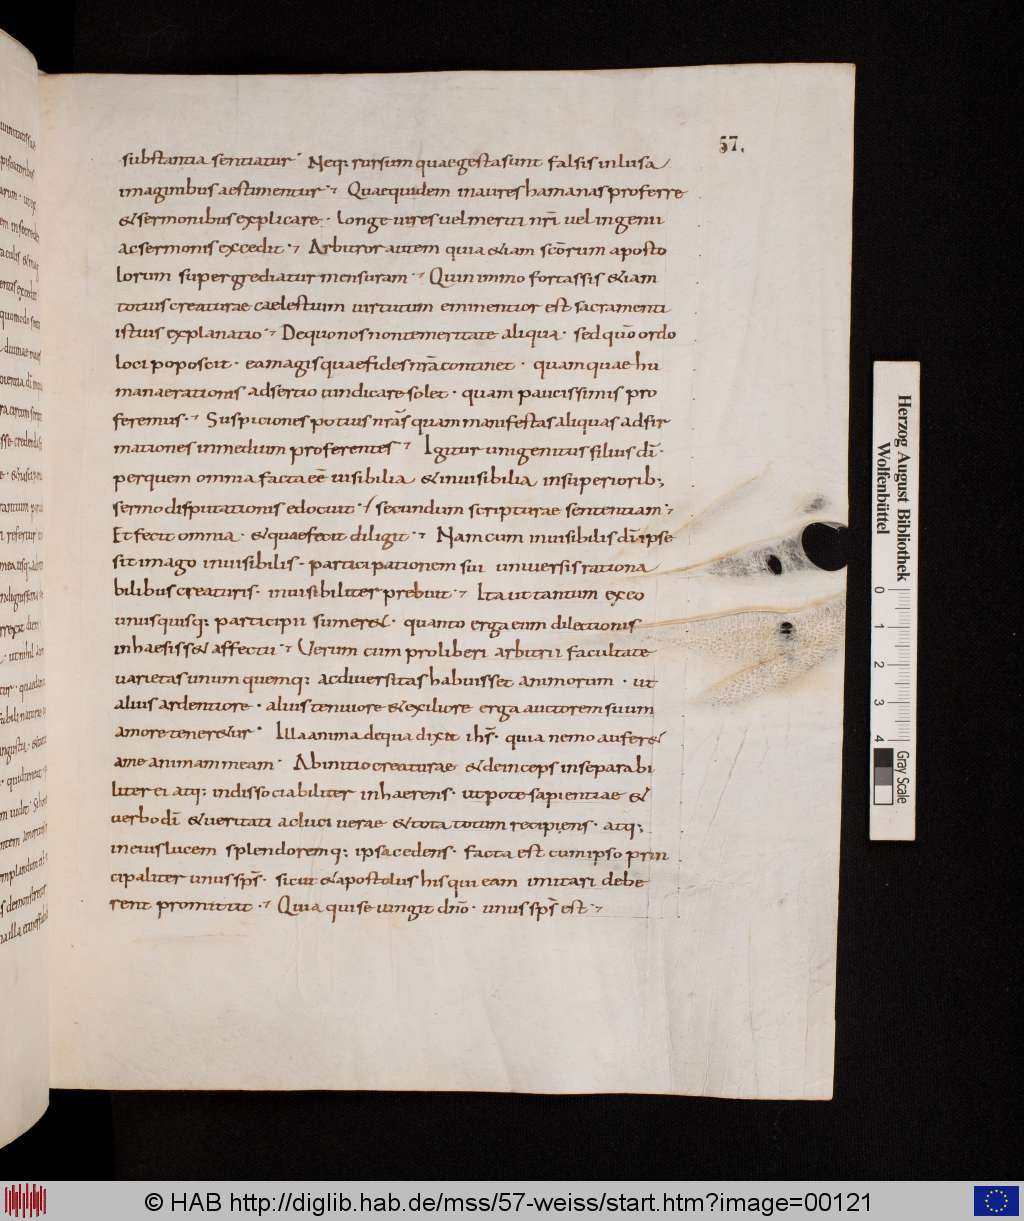 57.
substantia sentiatur· Neq: rursum quae gesta sunt falsis inlusa
imaginibus aestimentur· Quae quidem in aures humanas proferre
& sermonibus explicare· longe vires vel meriti nr̄i vel ingenii
ac sermonis excedit· Arbitror autem quia &iam scōrum aposto
lorum supergrediatur mensuram· Quin immo fortassis &iam
totius creaturae caelestium virtutum eminentior est sacramenti
istius explanatio· De quo nos non temeritate aliqua· sed quō ordo
loci poposcit· ea magis quae fides nr̄a continet· quam quae hu
manae rationis adsertio vindicare solet· quam paucissimis pro
feremus· Suspiciones potius nr̄as quam manifestas aliquas adfir
mationes in medium proferentes· Igitur unigenitus filius dī·
per quem omnia facta eē visibilia & invisibilia in superiorib;
sermo disputationis edocuit·/ secundum scripturae sententiam·
Et fecit omnia· & quae fecit diligit· Nam cum invisibilis dī ipse
sit imago invisibilis· participationem sui universis rationa
bilibus creaturis· invisibiliter prebuit· Ita ut tantum ex eo
unusquisq: participii sumer&· quanto erga eum dilectionis
inhaesiss& affectu· Verum cum pro liberi arbitrii facultate
varietas unumquemq: ac diversitas habuisset animorum· ut
alius ardentiore· alius tenuiore & exiliore erga auctorem suum
amore tener&ur· Illa anima de qua dixit ih̄s· quia nemo aufer&
a me animam meam· Ab initio creaturae & deinceps inseparabi
liter ei atq: indissociabiliter inhaerens· utpote sapientiae &
verbo dī & veritati ac luci verae & tota totum recipiens· atq:
in eius lucem splendoremq: ipsa cedens· facta est cum ipso prin
cipaliter unus sp̄s· sicut & apostolus his qui eam imitari debe
rent promittit· Quia qui se iungit dn̄o· unus sp̄s est·
Herzog August Bibliothek
Wolfenbüttel
0 1 2 3 4 Gray Scale
© HAB http://diglib.hab.de/mss/57-weiss/start.htm?image=00121